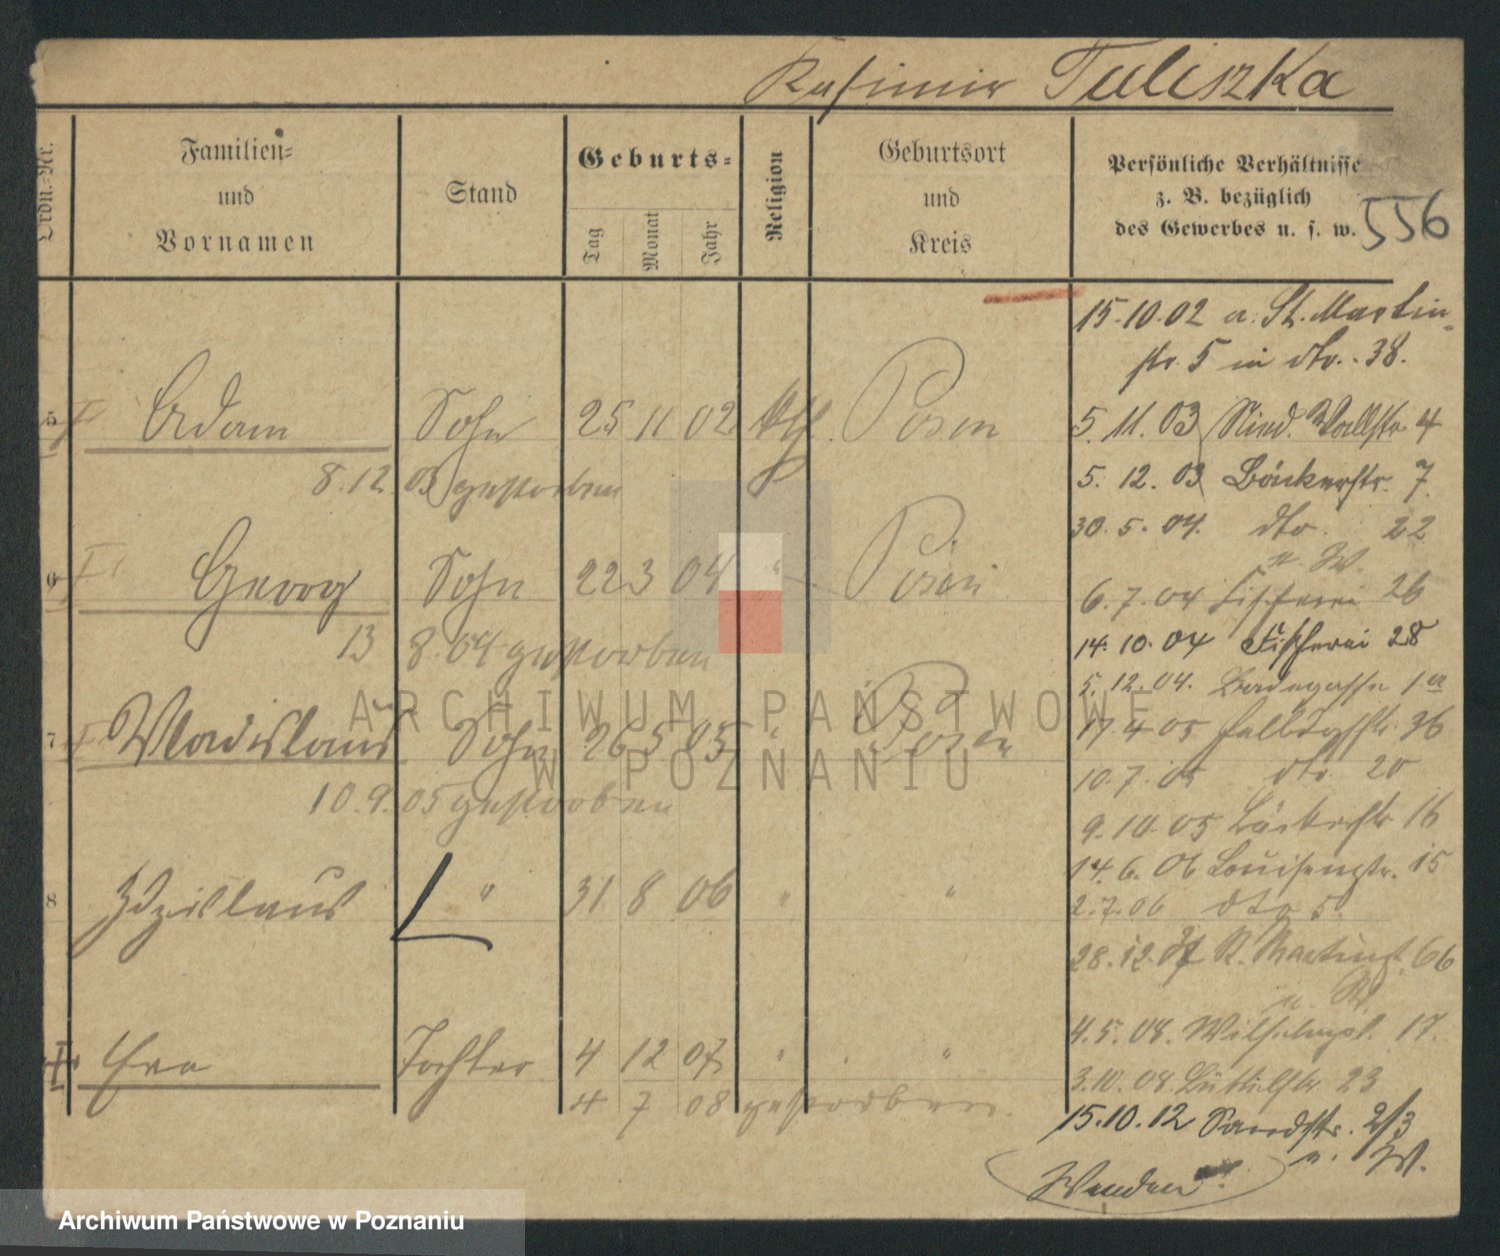 Kasimir Tuliszka
Ordn.-Nr.
Familien-
und
Vornamen
Stand
Geburts-
Tag
Monat
Jahr
Religion
Geburtsort
und
Kreis
Persönliche Verhältnisse
z. B. bezüglich
des Gewerbes u. s. w.
556
15.10.02 a. St. Martin-
str. 5 in dto. 38.
5 Adam Sohn 25 11 02 kth. Posen
5. 11. 03 Nied. Wallstr 4
8.12. 03 gestorben
5. 12. 03 Bäckerstr. 7.
30. 5. 04. dto. 22
6 Georg Sohn 22 3 04 " Posen
6. 7. 04 Fischerei 26
14. 10. 04 Fischerei 28
13 8. 04 gestorben
5. 12. 04. Badegasse 1a
7 Wladislaus Sohn 26 5 05 " Posen
17. 4 05 36
10. 7. 05 dto. 20
10.9.05 gestorben
9. 10. 05 Bäckerstr 16
14. 6. 06 Louisenstr. 15
8 Zdzislaus " 31 8 06 " "
2.7.06 dto 5.
28.12.07 St. Martinst. 66
4.5.08. Wilhelmpl. 17.
Eva Tochter 4 12 07 " "
3.10.08 23
4 7 08 gestorben.
15.10.12 Sandstr. 2/3
Wenden!
ARCHIWUM PAŃSTWOWE
W POZNANIU
Archiwum Państwowe w Poznaniu